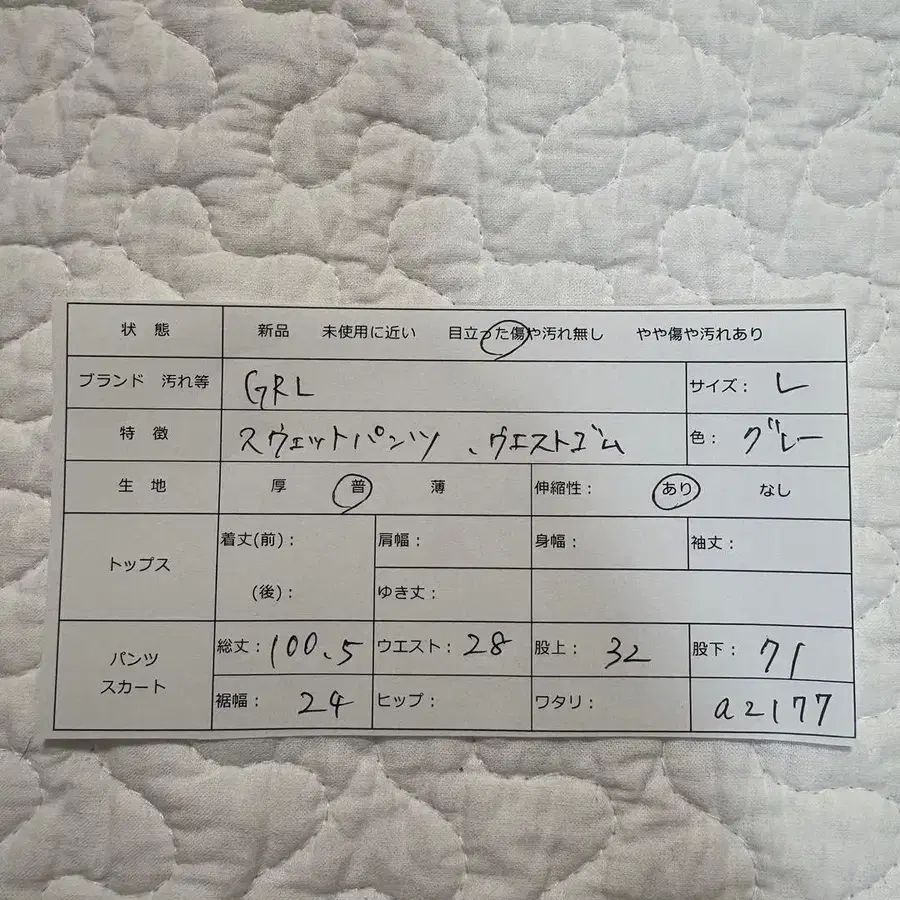 状 態 新品 未使用に近い 目立った傷や汚れ無し やや傷や汚れあり
ブランド 汚れ等 GRL サイズ: L
特 徴 スウェットパンツ、ウエストゴム 色: グレー
生 地 厚 普 薄 伸縮性: あり なし
トップス 着丈(前): 肩幅: 身幅: 袖丈:
(後): ゆき丈:
パンツ スカート 総丈: 100.5 ウエスト: 28 股上: 32 股下: 71
裾幅: 24 ヒップ: ワタリ: a2177